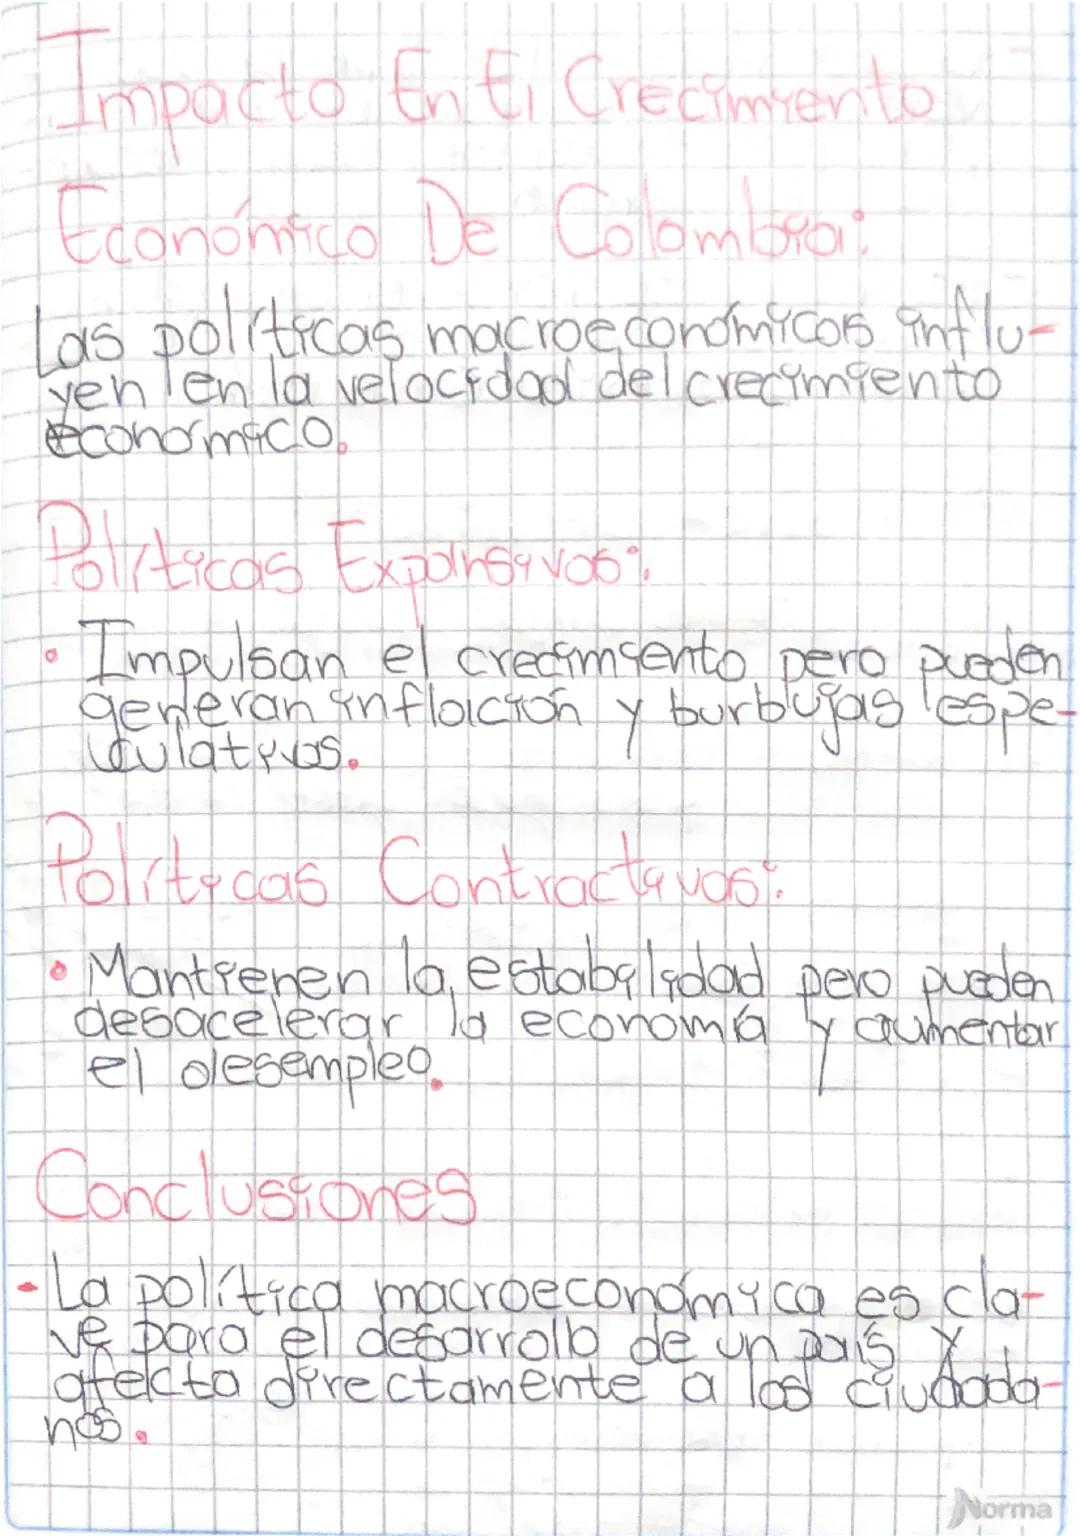 Impacto En El Crecimiento
Económico De Colombia:
Las políticas macroeconómicas influ-
yen en la velocidad del crecimiento
económico.
Políticas Expansivas:
• Impulsan el crecimiento pero pueden
generan inflación y burbujas espe-
culativas.
Políticas Contractivas:
• Mantienen la estabilidad pero pueden
desacelerar la economía y aumentar
el desempleo.
Conclusiones
- La política macroeconómica es cla-
ve para el desarrollo de un país y
afecta directamente a los ciudada-
nos.
Norma